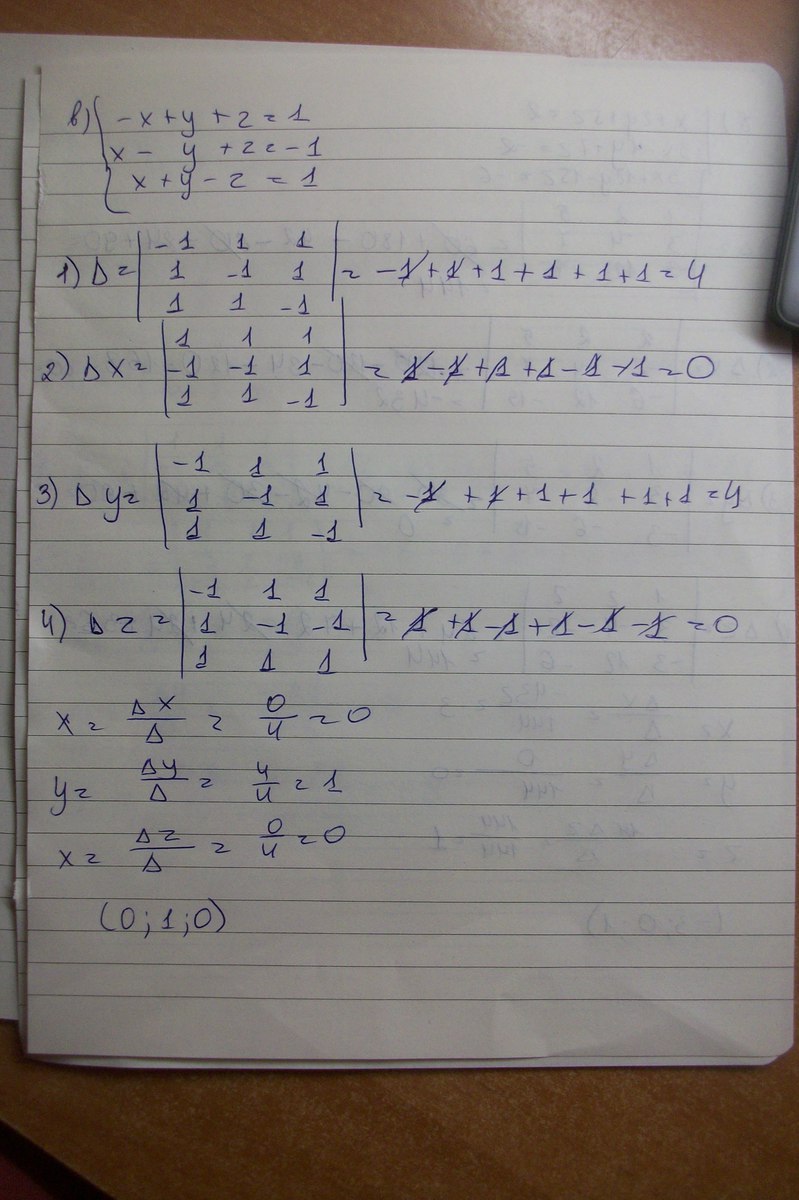 в) { -x + y + z = 1
x - y + z = -1
x + y - z = 1
1) Δ = | -1 1 1 |
| 1 -1 1 | = -1 + 1 + 1 + 1 + 1 + 1 = 4
| 1 1 -1 |
2) Δx = | 1 1 1 |
| -1 -1 1 | = 1 - 1 + 1 + 1 - 1 + 1 = 0
| 1 1 -1 |
3) Δy = | -1 1 1 |
| 1 -1 1 | = -1 + 1 + 1 + 1 + 1 + 1 = 4
| 1 1 -1 |
4) Δz = | -1 1 1 |
| 1 -1 -1 | = 1 + 1 - 1 + 1 - 1 - 1 = 0
| 1 1 1 |
x = Δx/Δ = 0/4 = 0
y = Δy/Δ = 4/4 = 1
x = Δz/Δ = 0/4 = 0
(0; 1; 0)